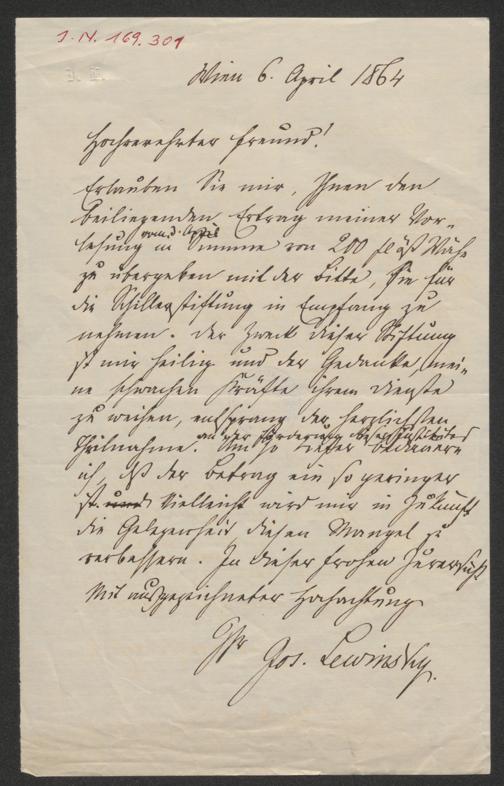 J. N. 169.301
Wien 6. April 1864
Hochverehrter Freund!
Erlauben Sie mir, Ihnen den
beiliegenden Ertrag meiner Vor-
lesung vom 3. April in Summe von 200 fl öst Währ
zu übergeben mit der Bitte, sie für
die Schillerstiftung in Empfang zu
nehmen. Der Zweck dieser Stiftung
ist mir heilig und der Gedanke, mei-
ne schwachen Kräfte ihrem Dienste
zu weihen, entsprang der herzlichsten
Theilnahme. an der Förderung dieses Institutes
Um so tiefer bedauere
ich, daß der Betrag ein so geringer
ist. und Vielleicht wird mir in Zukunft
die Gelegenheit, diesen Mangel zu
verbessern. In dieser frohen Zuversicht
Mit ausgezeichneter Hochachtung
Jos. Lewinsky.